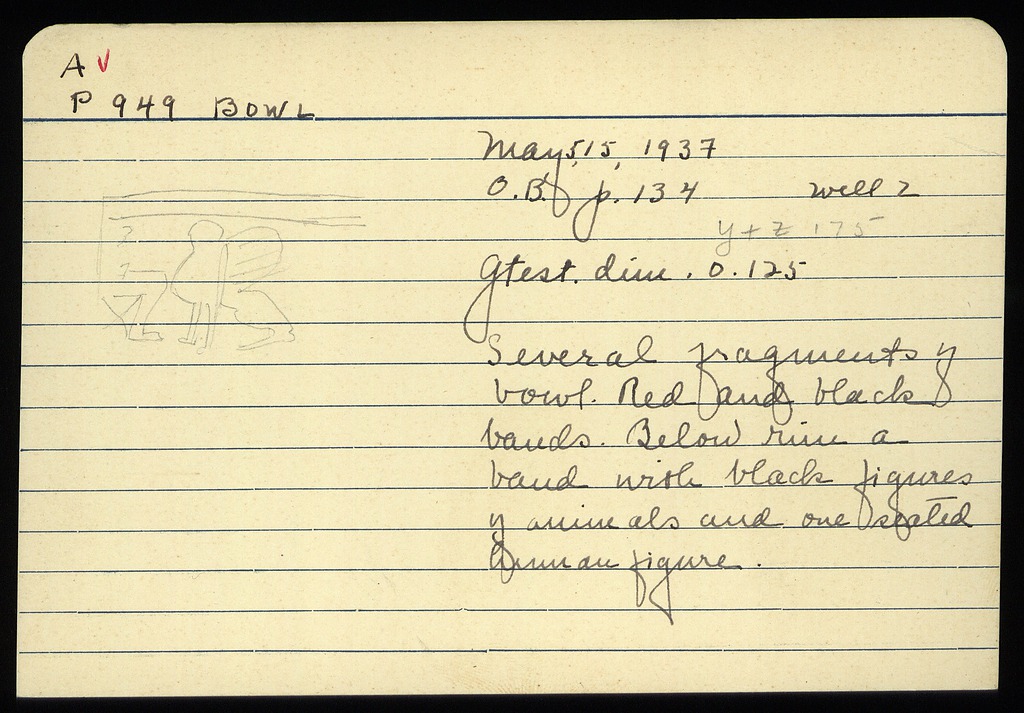 A V
P 949 BOWL
May 5, 15, 1937
O.B. p. 134 well 2
y + z 175
Gtest. dim. 0.125
Several fragments of
bowl. Red and black
bands. Below rim a
band with black figures
of animals and one seated
human figure.